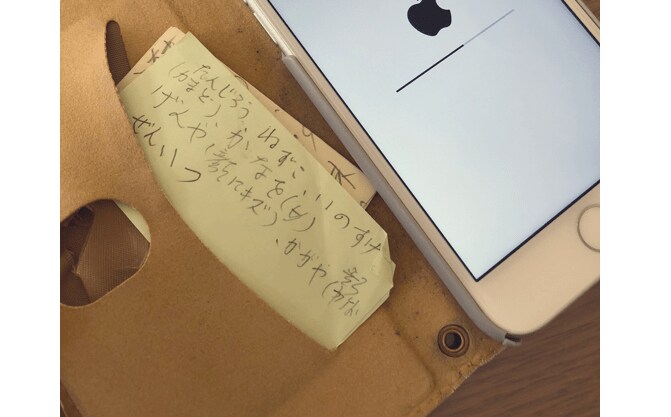 たんじろう ねずこ、いのすけ
(かまど)
げんや、かなを(女)
(顔にキズ)
ぜんいつ 、かがや(顔